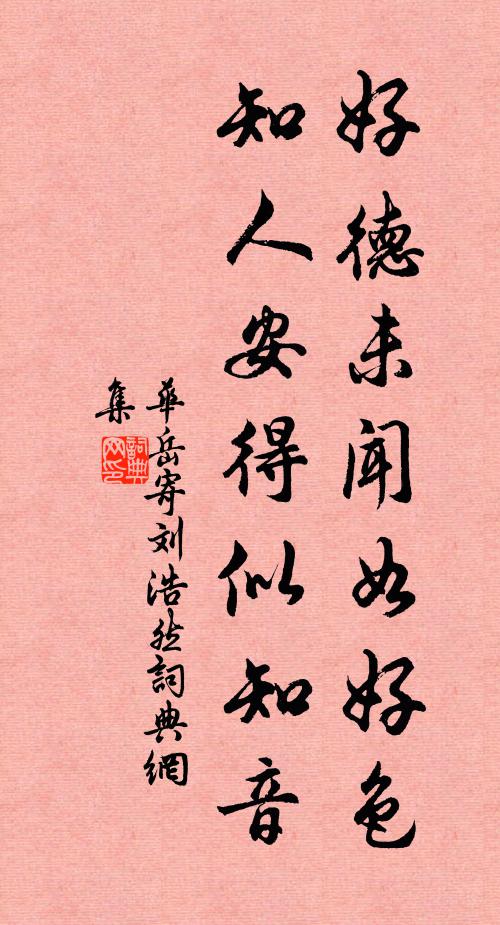 好德未闻如好色
知人安得似知音
華岳寄刘浩然詞典網
集
詞典
网印